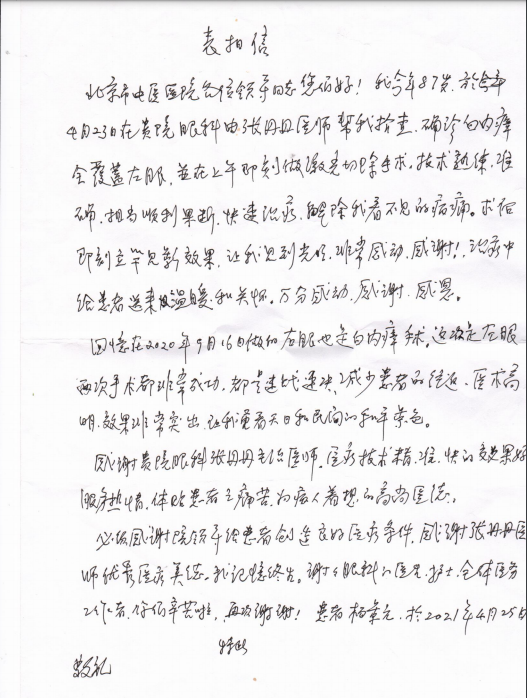 表扬信
北京市中医医院各位领导同志您们好！我今年87岁，於今年
4月23日在贵院眼科由张丹丹医师幫我检查，确诊白内瘴
全覆蓋左眼，並在上午即刻做激光切除手术，技术熟练，准
确，相当顺利果断，快速治疗，解除我看不见的病痛。术后
即刻立竿见影效果，让我见到光明，非常感动，感谢！治疗中
给患者送来温暖和关怀。万分感动，感谢，感恩。
回忆在2020年9月16日做的右眼也是白内瘴手术，这次是左眼
两次手术都非常成功，都是速战速决，减少患者的往返，医术高
明，效果非常突出，让我重看天日和民间的和平景色。
感谢贵院眼科张丹丹主治医师，医疗技术精，准，快的效果好
服务热情，体贴患者之痛苦，为病人着想的高尚医德。
必须感谢院领导给患者创造良好医疗条件，感谢张丹丹医
师优秀医疗美德，我记忆终生。谢谢眼科的医生，护士，全体医务
工作者，你们辛苦啦，再次谢谢！患者 於2021年4月25日
特此
敬礼